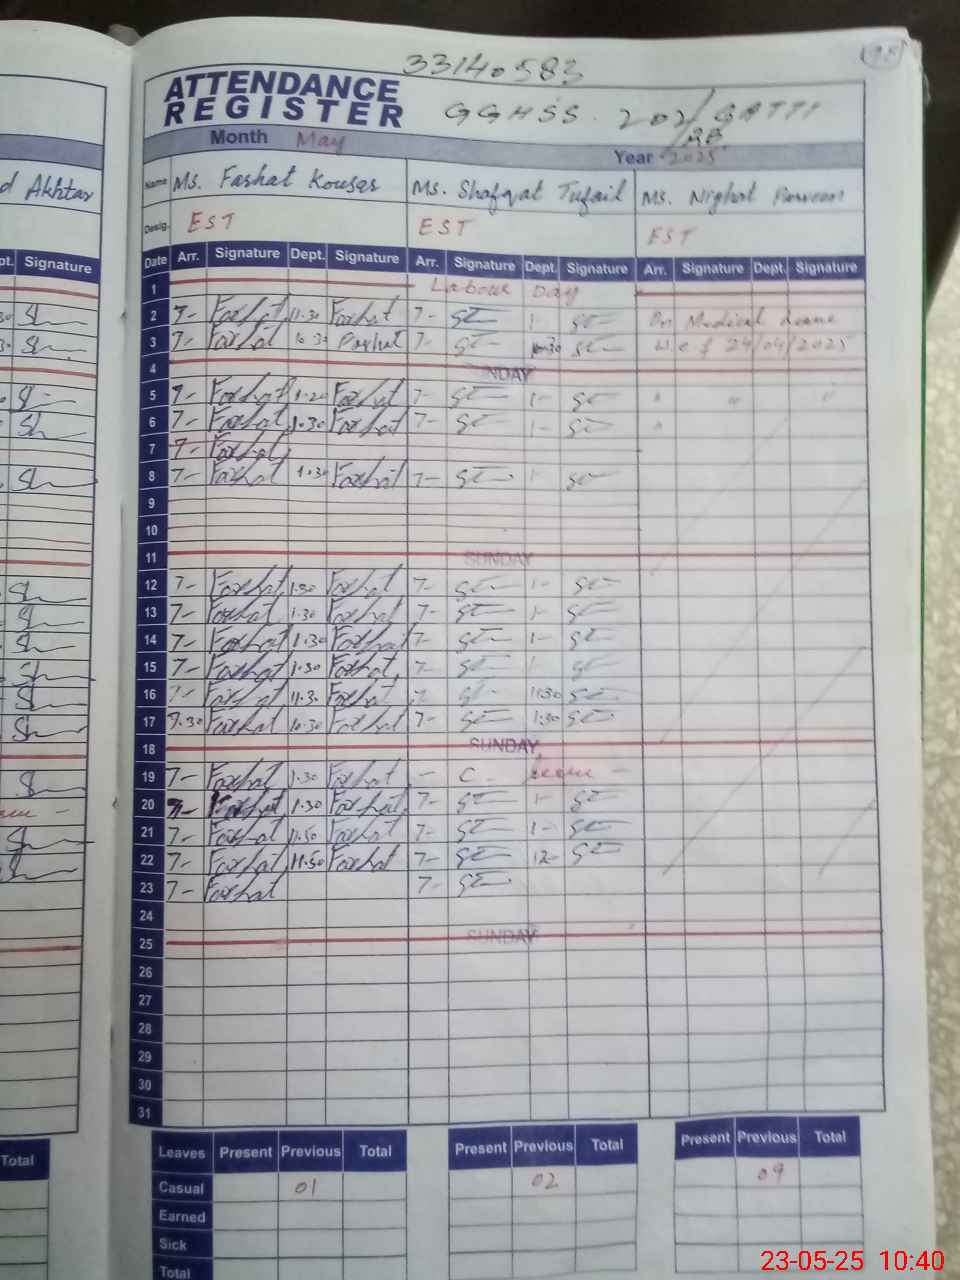 33140583
ATTENDANCE
REGISTER
GGHSS. 202/GATTI
RB
Month May
Year 2025
d Akhtar
Name Ms. Farhat Kousar Ms. Shafqat Tufail Ms. Nighat Parveen
Desig. EST EST EST
pt. Signature
Date Arr. Signature Dept. Signature Arr. Signature Dept. Signature Arr. Signature Dept. Signature
1 Labour Day
2 7- Farhat 11.30 Farhat 7- 1- On Medical Leave
3 7- Farhat 10.30 Farhat 7- 10:30 w.e.f 24/04/2025
4 SUNDAY
5 7- Farhat 1.20 Farhat 7- 1- " " "
6 7- Farhat 1.30 Farhat 7- 1- "
7 7- Farhat
8 7- Farhat 1.30 Farhat 7- 1-
9
10
11 SUNDAY
12 7- Farhat 1.30 Farhat 7- 1-
13 7- Farhat 1.30 Farhat 7- 1-
14 7- Farhat 1.30 Farhat 7- 1-
15 7- Farhat 1.30 Farhat 7- 1-
16 7- Farhat 11.30 Farhat 7- 11:30
17 7.30 Farhat 10.30 Farhat 7- 1:30
18 SUNDAY
19 7- Farhat 1.30 Farhat - C. Leave -
20 7- Farhat 1.30 Farhat 7- 1-
21 7- Farhat 11.50 Farhat 7- 1-
22 7- Farhat 11.50 Farhat 7- 12-
23 7- Farhat 7-
24
25 SUNDAY
26
27
28
29
30
31
Total
Leaves Present Previous Total Present Previous Total Present Previous Total
Casual 01 02 09
Earned
Sick
Total
23-05-25 10:40